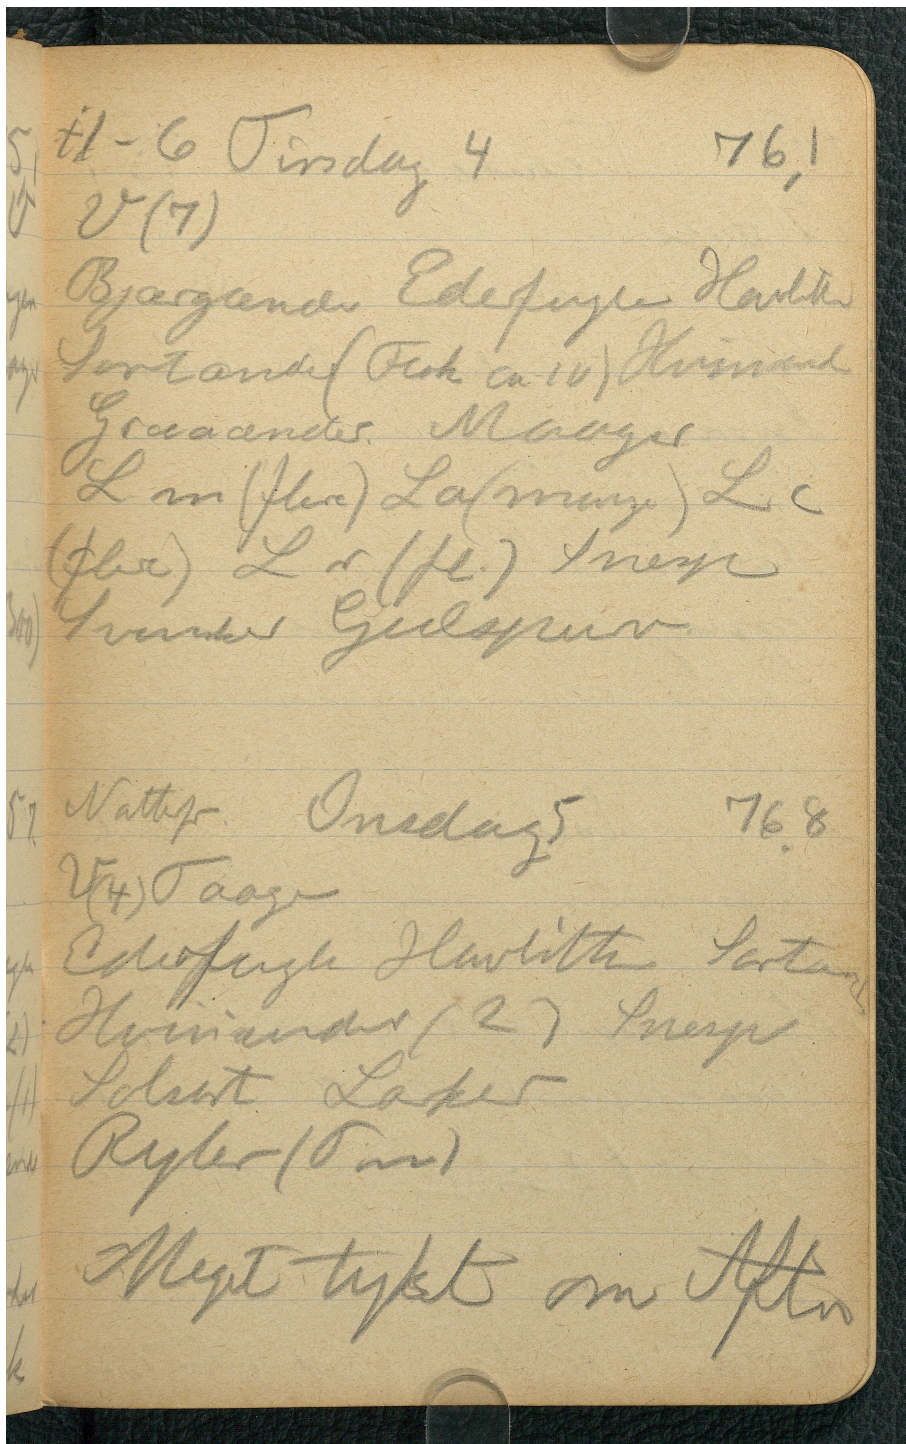 ÷1 - 6 Tirsdag 4 76,1
V (7)
Bjærgænder Ederfugle Havlitter
Sortænder (Flok ca 10) Hvinænd
Graaænder. Maager
L m (flere) L a (mange) L. c
(flere) L r (fl.) Snesp
Svinker Gulspurv
Nattefr. Onsdag 5 76.8
V(4) Taage
Ederfugle Havlitter Sortænd
Hvinænder (2) Snesp
Solsort Laker
Ryler (Tom)
Meget tykt om Aften